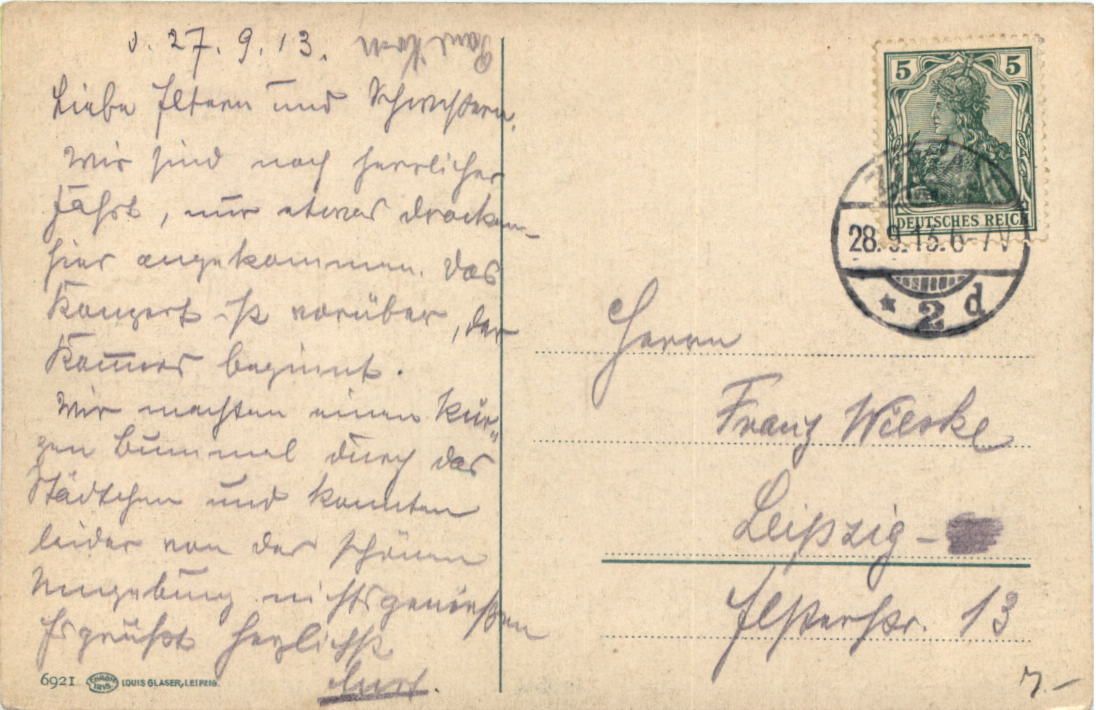 d. 27. 9. 13.
Liebe Eltern und Schwestern.
Wir sind nach herrlicher
Fahrt, nur etwas trocken
hier angekommen. Das
Konzert ist vorüber, der
Kommers beginnt.
Wir machten einen kur-
zen Bummel durch das
Städtchen und konnten
leider von der schönen
Umgebung nichts genießen
Es grüßt herzlichst
Curt.
6921 LOUIS GLASER, LEIPZIG.
5 5
DEUTSCHES REICH
28.9.13.6-7V
* 2 d
Herrn
Franz Wilske
Leipzig -
Elsterstr. 13
7.-